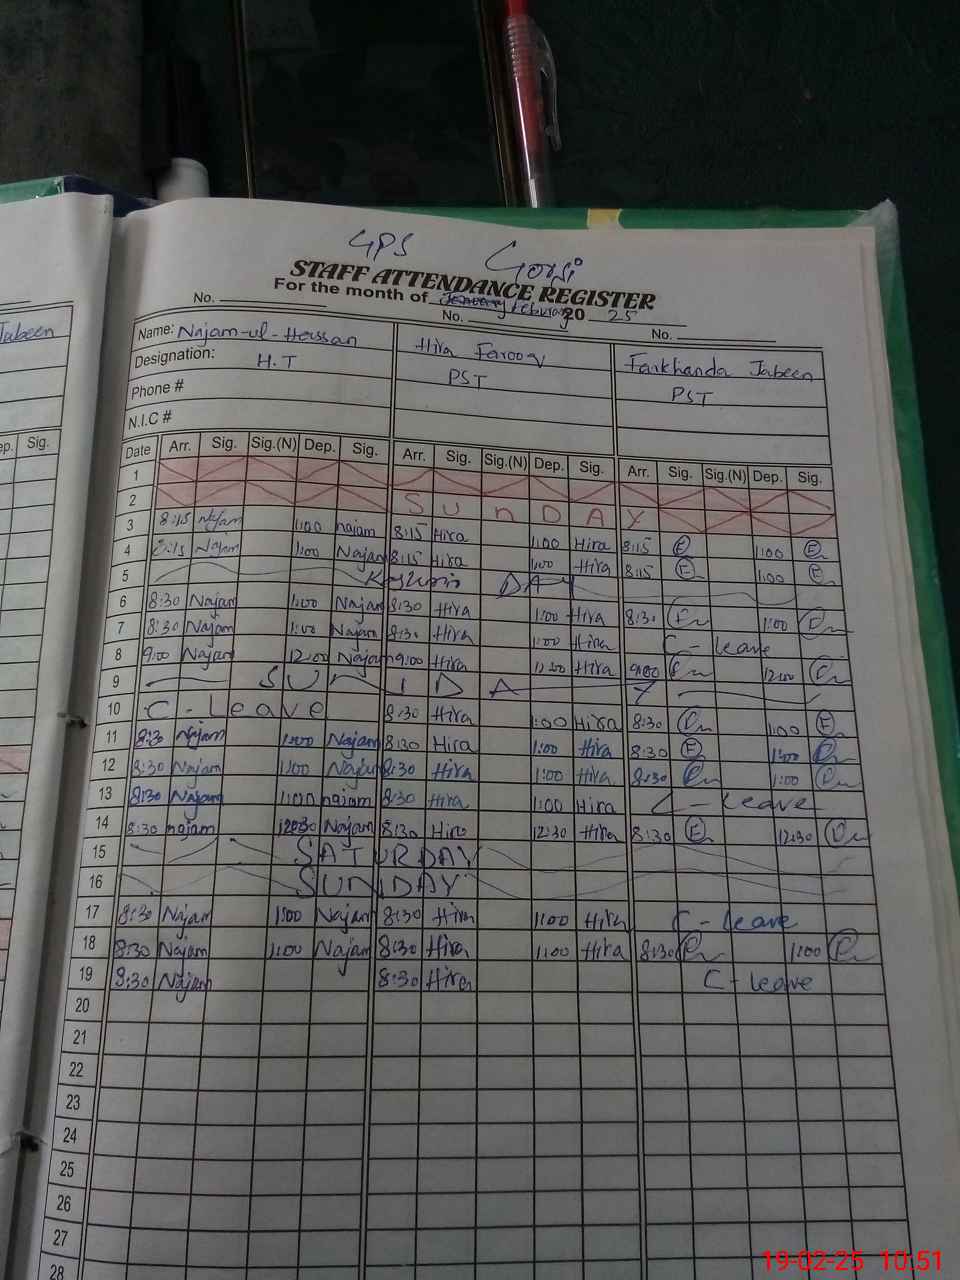 GPS Gorsi
STAFF ATTENDANCE REGISTER
For the month of January February 2025
No. No. No.
Jabeen
Name: Najam-ul-Hassan Hira Farooq Farkhanda Jabeen
Designation: H.T PST PST
Phone #
N.I.C #
ep. Sig.
Date Arr. Sig. Sig.(N) Dep. Sig. Arr. Sig. Sig.(N) Dep. Sig. Arr. Sig. Sig.(N) Dep. Sig.
1
2 SUNDAY
3 8:15 Najam 1:00 najam 8:15 Hira 1:00 Hira 8:15 1:00
4 8:15 Najam 1:00 Najam 8:15 Hira 1:00 Hira 8:15 1:00
5 DAY
6 8:30 Najam 1:00 Najam 8:30 Hira 1:00 Hira 8:30 1:00
7 8:30 Najam 1:00 Najam 8:30 Hira 1:00 Hira C-leave
8 9:00 Najam 12:00 Najam 9:00 Hira 12:00 Hira 9:00 12:00
9 SUNDAY
10 C-Leave 8:30 Hira 1:00 Hira 8:30 1:00
11 8:30 Najam 1:00 Najam 8:30 Hira 1:00 Hira 8:30 1:00
12 8:30 Najam 1:00 Najam 8:30 Hira 1:00 Hira 8:30 1:00
13 8:30 Najam 1:00 najam 8:30 Hira 1:00 Hira C-leave
14 8:30 najam 12:30 Najam 8:30 Hira 12:30 Hira 8:30 12:30
15 SATURDAY
16 SUNDAY
17 8:30 Najam 1:00 Najam 8:30 Hira 1:00 Hira C-leave
18 8:30 Najam 1:00 Najam 8:30 Hira 1:00 Hira 8:30 1:00
19 8:30 Najam 8:30 Hira C-leave
20
21
22
23
24
25
26
27
28
19-02-25 10:51